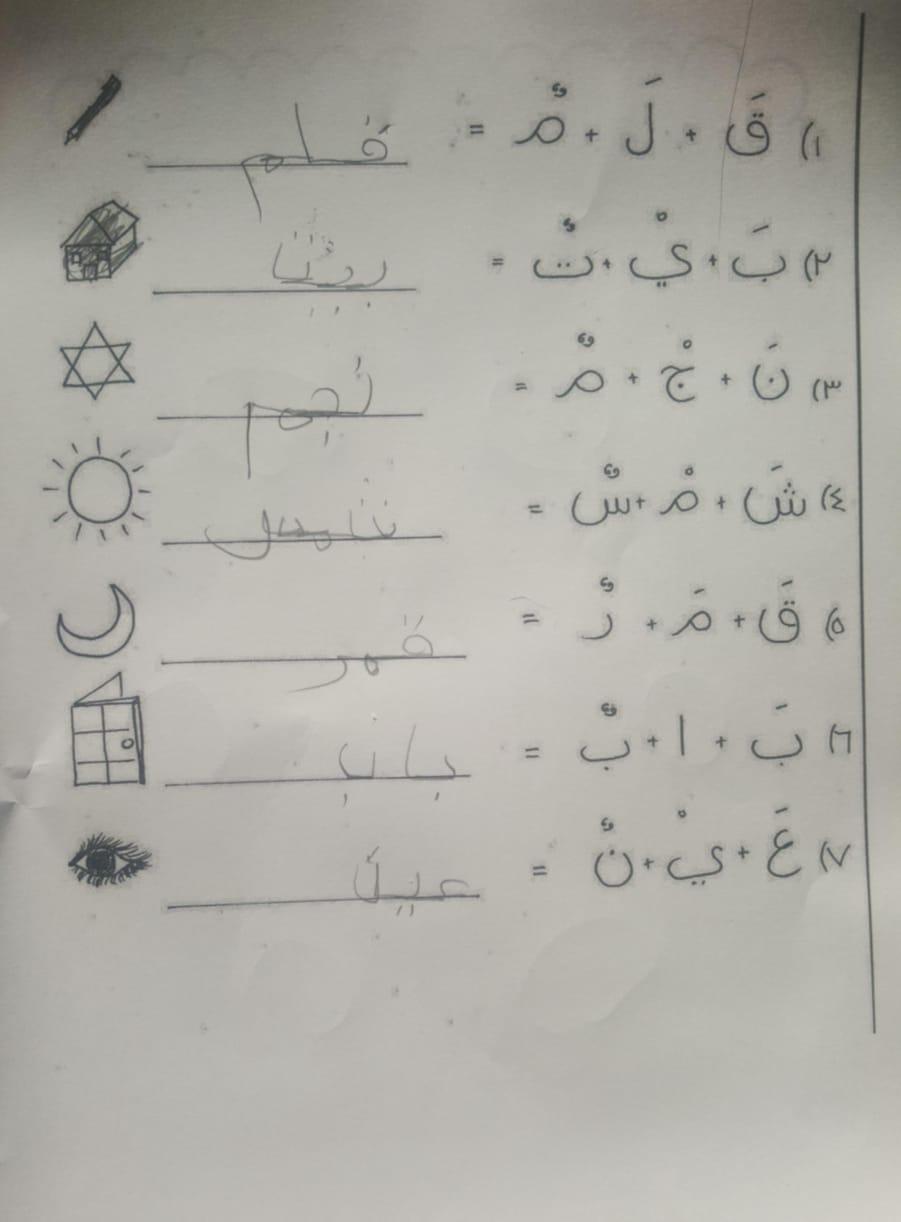 ١) قَ + لَ + مٌ = قلم
٢) بَ + يْ + تٌ = بيت
٣) نَ + جْ + مٌ = نجم
٤) شَ + مْ + سٌ = شمس
٥) قَ + مَ + رٌ = قمر
٦) بَ + ا + بٌ = باب
٧) عَ + يْ + نٌ = عين